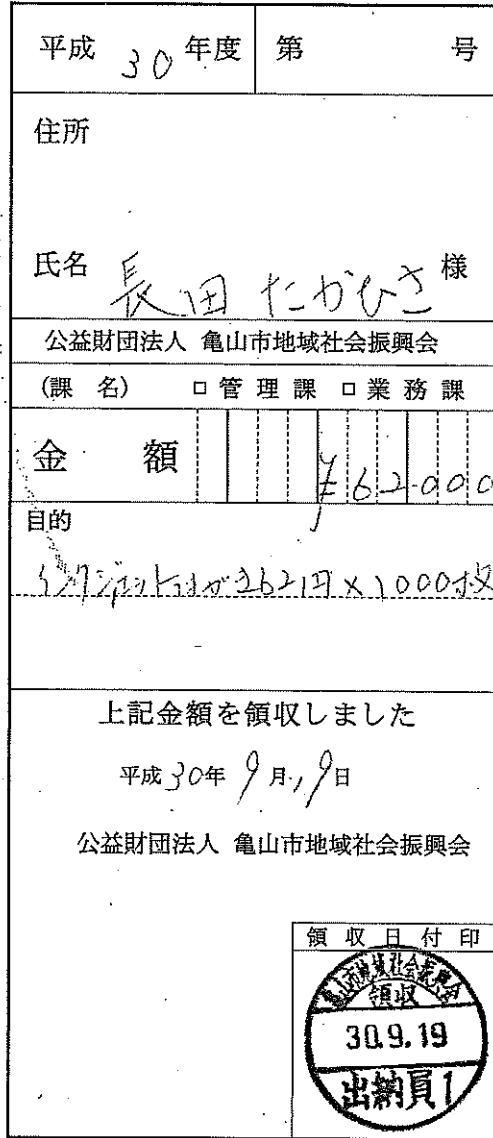 平成 30 年度 第 号
住所
氏名 長田 たかひさ 様
公益財団法人 亀山市地域社会振興会
(課 名) □管理課 □業務課
金 額 ¥62000
目的
インクジェットはがき62円×1000枚
上記金額を領収しました
平成30年 9月19日
公益財団法人 亀山市地域社会振興会
領収日付印
亀山市地域社会振興会
領収
30.9.19
出納員1